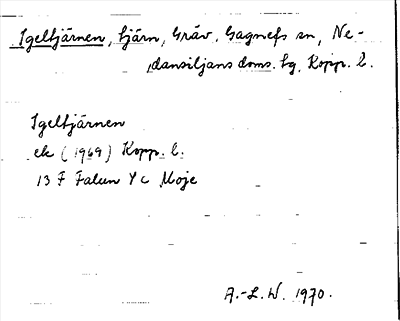 Igeltjärnen, tjärn, Gräv, Gagnefs sn, Ne-
dansiljans doms. tg, Kopp. l.
Igeltjärnen
ek (1969) Kopp. l.
13 F Falun Y c Moje
A.-L. W. 1970.